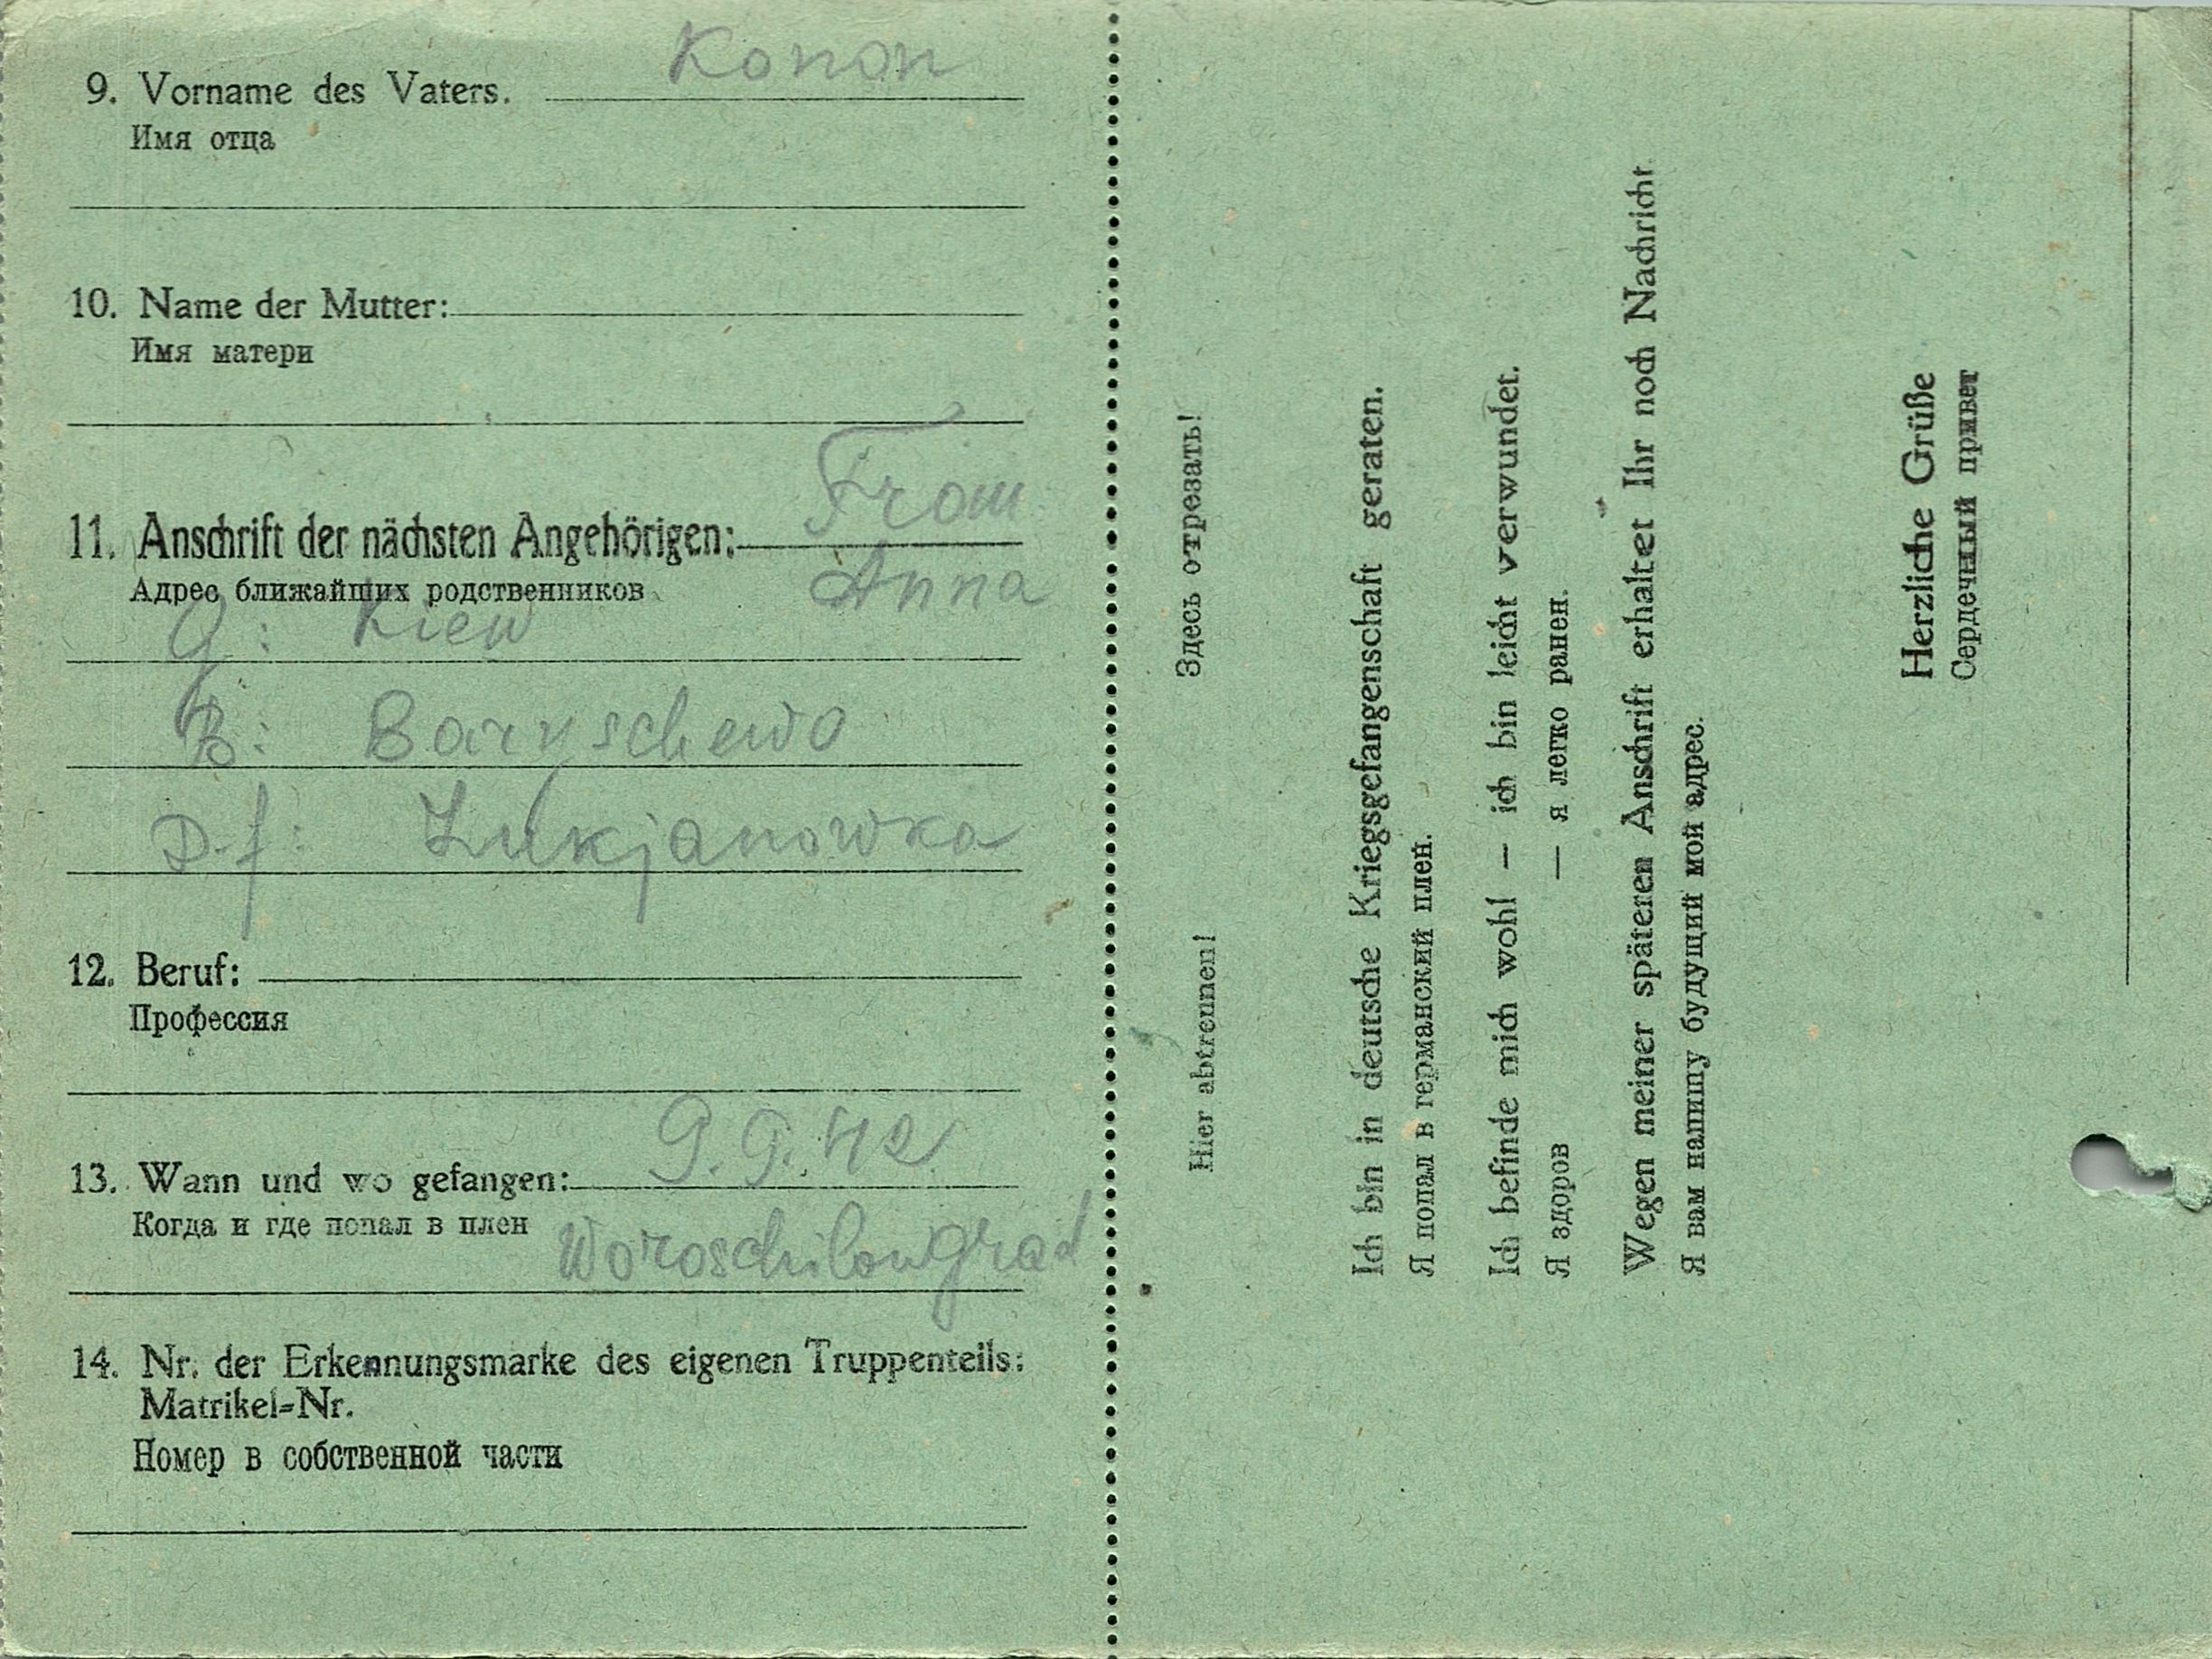 Konon
9. Vorname des Vaters.
Имя отца
10. Name der Mutter:
Имя матери
From
11. Anschrift der nächsten Angehörigen:
Anna
Адрес ближайших родственников
G: Kiew
B: Baryschewo
D-f: Lukjanowka
12. Beruf:
Профессия
9.9.42
13. Wann und wo gefangen:
Когда и где попал в плен
Woroschilowgrad
14. Nr. der Erkennungsmarke des eigenen Truppenteils:
Matrikel-Nr.
Номер в собственной части
Hier abtrennen! Здесь отрезать!
Ich bin in deutsche Kriegsgefangenschaft geraten.
Я попал в германский плен.
Ich befinde mich wohl — ich bin leicht verwundet.
Я здоров — я легко ранен.
Wegen meiner späteren Anschrift erhaltet Ihr noch Nachricht.
Я вам напишу будущий мой адрес.
Herzliche Grüße
Сердечный привет